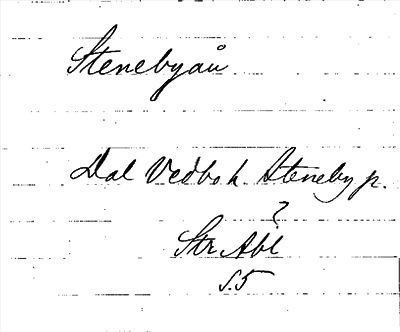 Stenebyån
Dal Vedbo h Steneby p.
?
Str Abl
S. 5